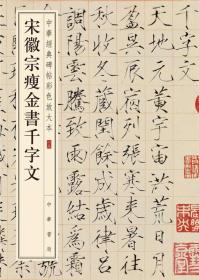 中華經典碑帖彩色放大本
宋徽宗瘦金書千字文
中華書局
千字文
天地元黃宇宙洪荒日月
盈昃辰宿列張寒來暑往
秋收冬藏閏餘成歲律呂
調陽雲騰致雨露結為霜